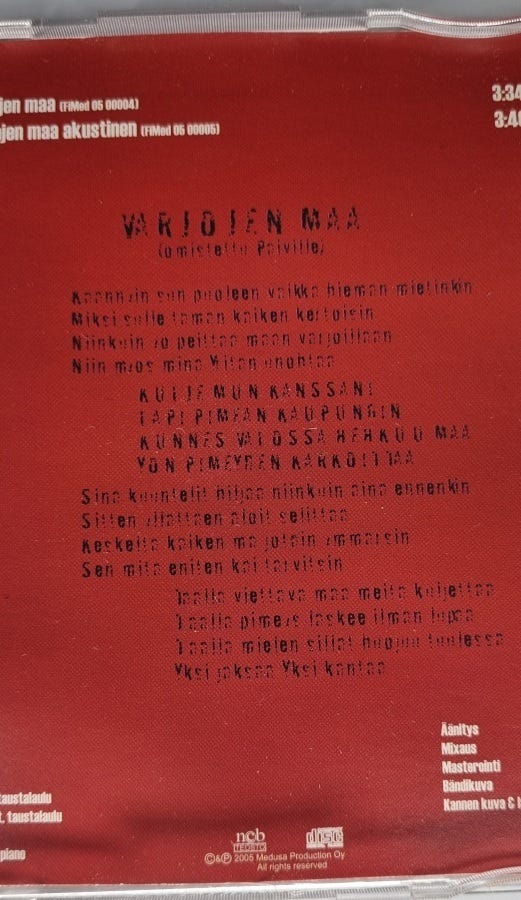 jen maa (FIMed 05 00004) 3:34
jen maa akustinen (FIMed 05 00005) 3:4
VARJOJEN MAA
(omistettu Päiville)
Käännyin sun puoleen vaikka hieman mietinkin
Miksi sulle tämän kaiken kertoisin
Niinkuin yö peittää maan varjoillaan
Niin myös minä yritän unohtaa
KULJE MUN KANSSANI
LÄPI PIMEÄN KAUPUNGIN
KUNNES VALOSSA HEHKUU MAA
YÖN PIMEYDEN KARKOITTAA
Sinä kuuntelit hiljaa niinkuin aina ennenkin
Sitten yllättäen aloit selittää
Keskeltä kaiken mä jotain ymmärsin
Sen mitä eniten kai tarvitsin
Täällä viettävä maa meitä kuljettaa
Täällä pimeys laskee ilman lupaa
Täällä mielen sillat huojuu tuulessa
Yksi jaksaa Yksi kantaa
Äänitys
Mixaus
Masterointi
Bändikuva
Kannen kuva &
taustalaulu
t, taustalaulu
piano
ncb
TEOSTO
disc
©&℗ 2005 Medusa Production Oy
All rights reserved